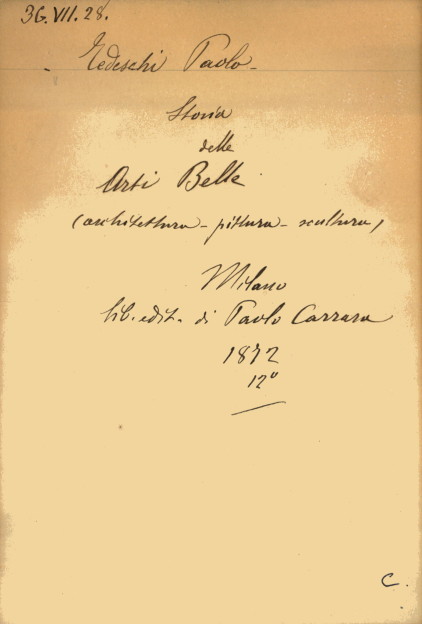 36.VII.28.
Tedeschi Paolo-
Storia
delle
Arti Belle
(architettura - pittura - scultura)
Milano
lib. edit. di Paolo Carrara
1872
12º
C.